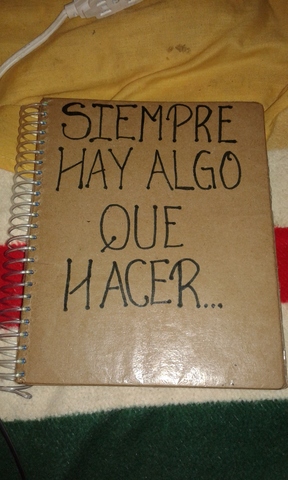 SIEMPRE
HAY ALGO
QUE
HACER...